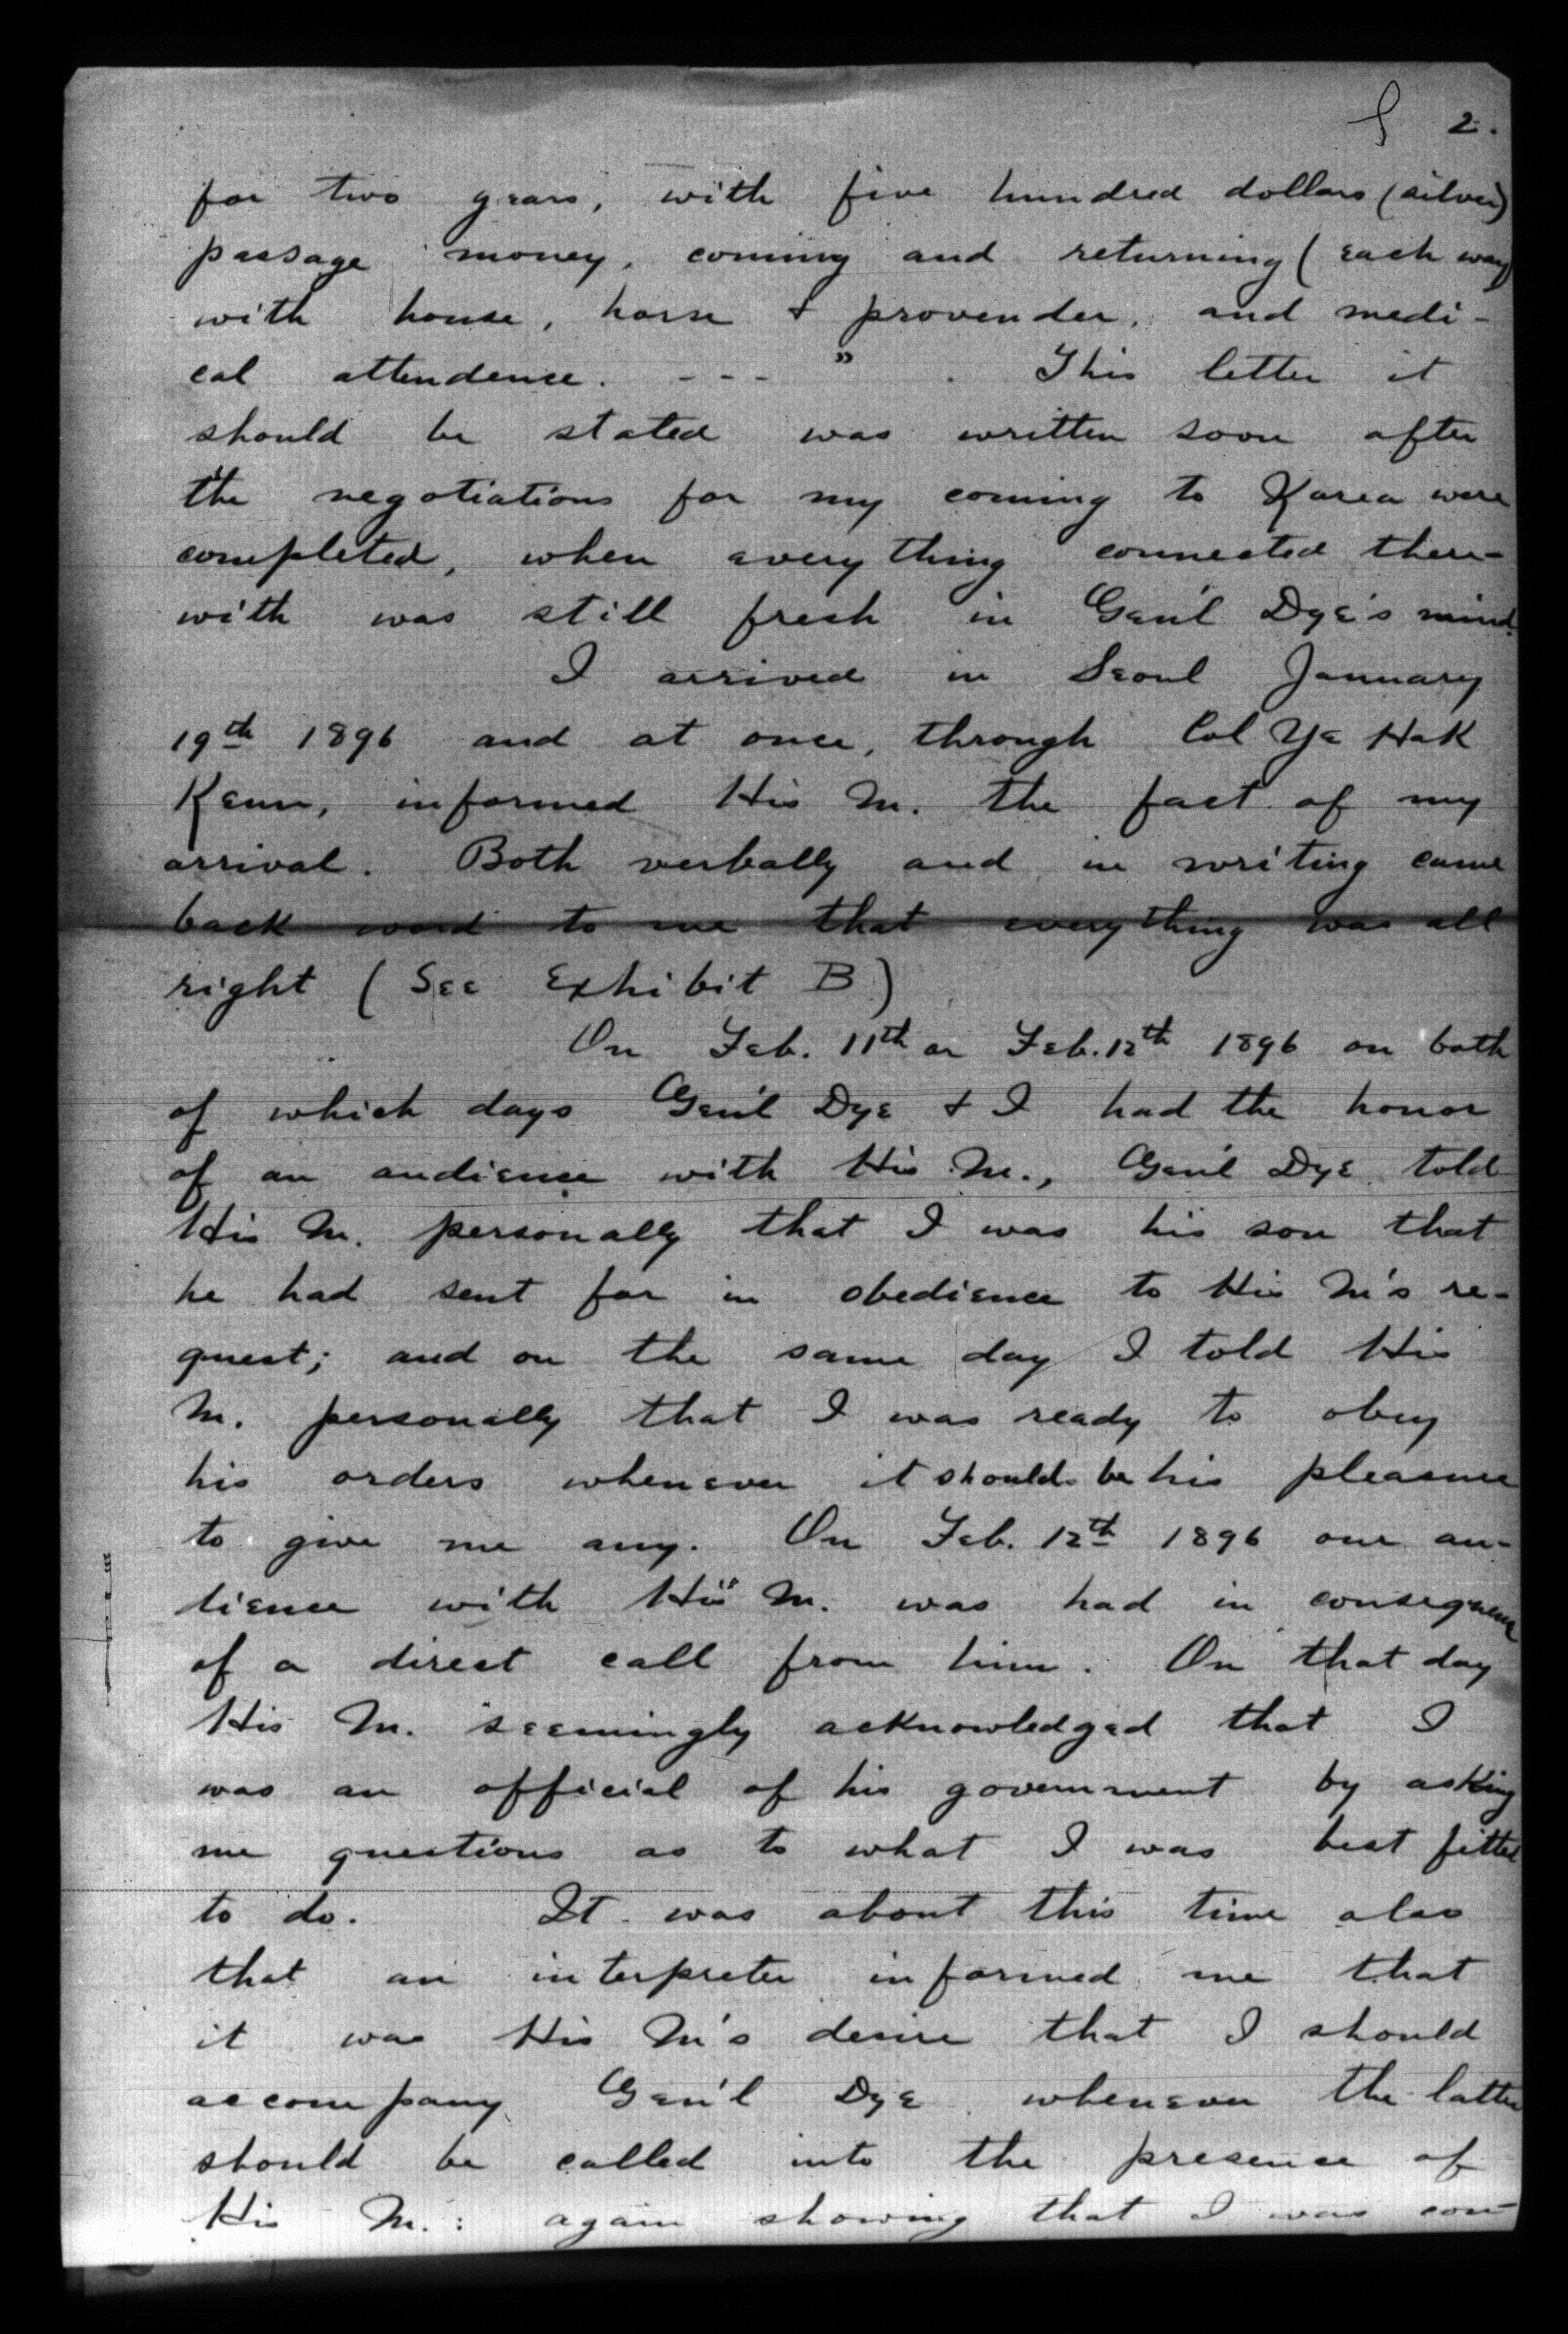 2.
for two years, with five hundred dollars (silver)
passage money, coming and returning (each way
with house, horse + provender, and medi-
cal attendence. - - - " . This letter it
should be stated was written soon after
the negotiations for my coming to Korea were
completed, when everything connected there-
with was still fresh in Gen'l Dye's mind.
I arrived in Seoul January
19th 1896 and at once, through Col Ye Hak
Keun, informed His M. the fact of my
arrival. Both verbally and in writing came
back word to me that everything was all
right (See Exhibit B)
On Feb. 11th or Feb. 12th 1896 on both
of which days Gen'l Dye + I had the honor
of an audience with His M., Gen'l Dye told
His M. personally that I was his son that
he had sent for in obedience to His M's re-
quest; and on the same day I told His
M. personally that I was ready to obey
his orders whenever it should be his pleasure
to give me any. On Feb. 12th 1896 our au-
dience with His M. was had in consequence
of a direct call from him. On that day
His M. seemingly acknowledged that I
was an official of his government by asking
me questions as to what I was best fitted
to do. It was about this time also
that an interpreter informed me that
it was His M's desire that I should
accompany Gen'l Dye whenever the latter
should be called into the presence of
His M.: again showing that I was con-